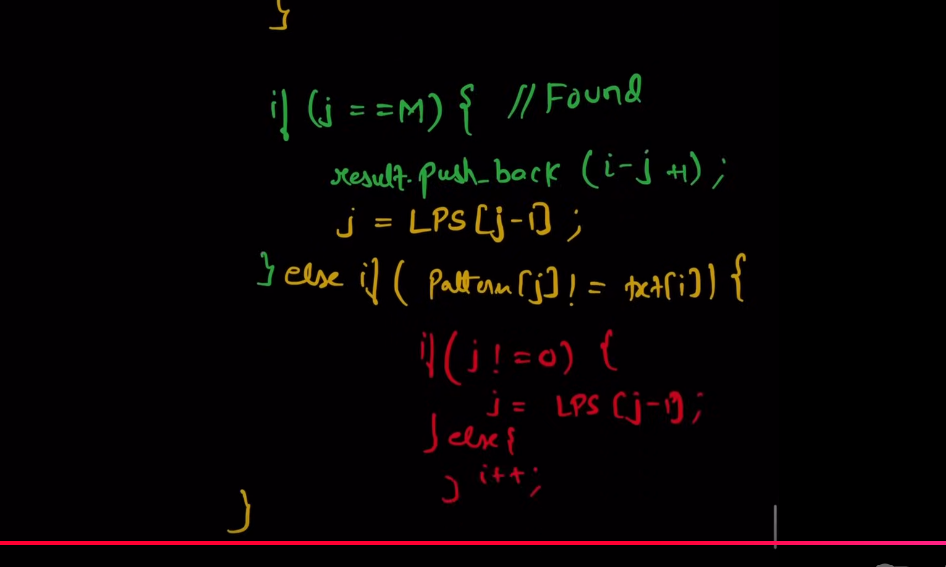 }
if (j == M) { // Found
result.push_back (i-j+1);
j = LPS[j-1];
} else if ( Pattern[j] != txt[i]) {
if (j != 0) {
j = LPS [j-1];
} else {
i++;
}
}